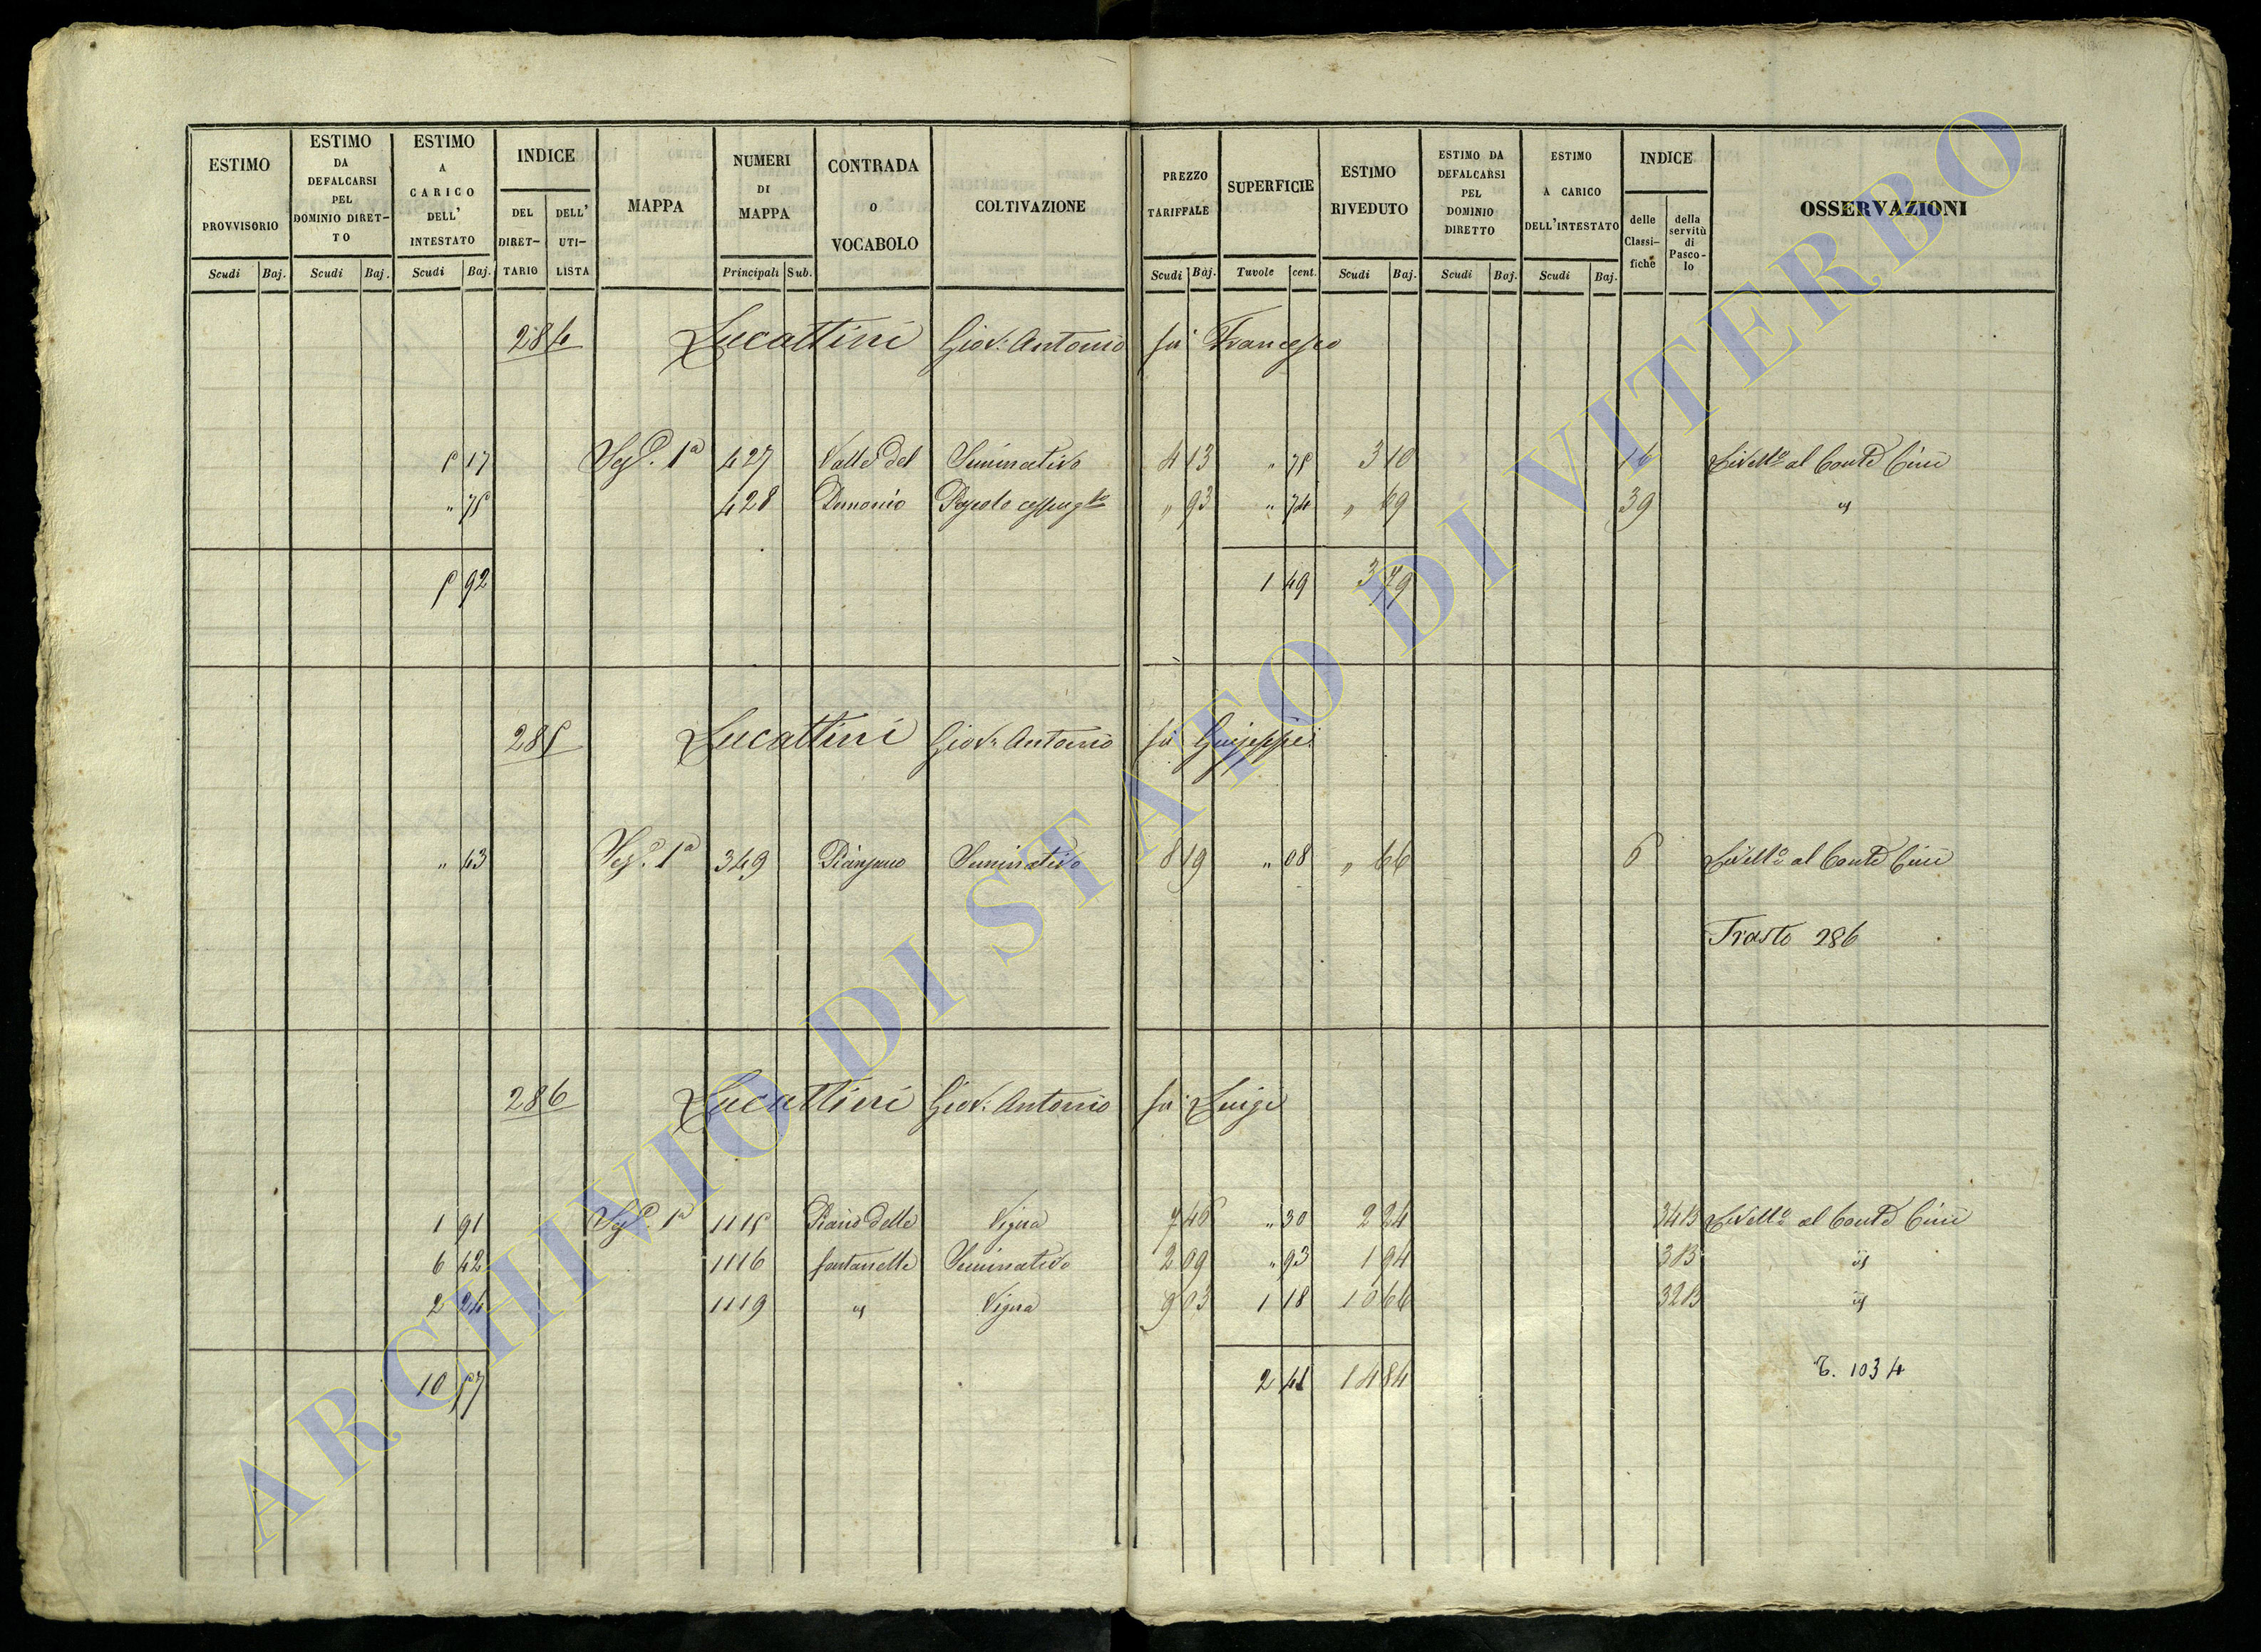 ESTIMO PROVVISORIO
ESTIMO DA DEFALCARSI PEL DOMINIO DIRET- TO
ESTIMO A CARICO DELL' INTESTATO
INDICE
DEL DIRET- TARIO
DELL' UTI- LISTA
MAPPA
NUMERI DI MAPPA
CONTRADA o VOCABOLO
COLTIVAZIONE
PREZZO TARIFFALE
SUPERFICIE
ESTIMO RIVEDUTO
ESTIMO DA DEFALCARSI PEL DOMINIO DIRETTO
ESTIMO A CARICO DELL'INTESTATO
INDICE
delle Classi- fiche
della servitù di Pasco- lo
OSSERVAZIONI
Scudi Baj. Scudi Baj. Scudi Baj. Principali Sub. Scudi Baj. Tavole cent. Scudi Baj. Scudi Baj. Scudi Baj.
284 Lucattini Giov: Antonio fu Francesco
5 17 Seg.e 1a 427 Valle del Seminativo 4 13 " 75 3 10 16 Livello al Conte Cini
" 75 428 93 " 74 " 69 39 id
5 92 1 49 3 79
285 Lucattini Giov: Antonio fu Giuseppe
" 43 Seg.e 1a 349 Pianzano Seminativo 8 19 " 08 " 66 6 Livello al Conte Cini
Trasto 286
286 Lucattini Giov: Antonio fu Luigi
1 91 Seg.e 1a 1115 Piano delle Vigna 7 46 " 30 2 24 34B Livello al Conte Cini
6 42 1116 fontanelle Seminativo 2 09 " 93 1 94 38B id
2 24 1119 id Vigna 9 03 1 18 10 66 32B id
10 57 2 41 14 84 T. 1034
ARCHIVIO DI STATO DI VITERBO